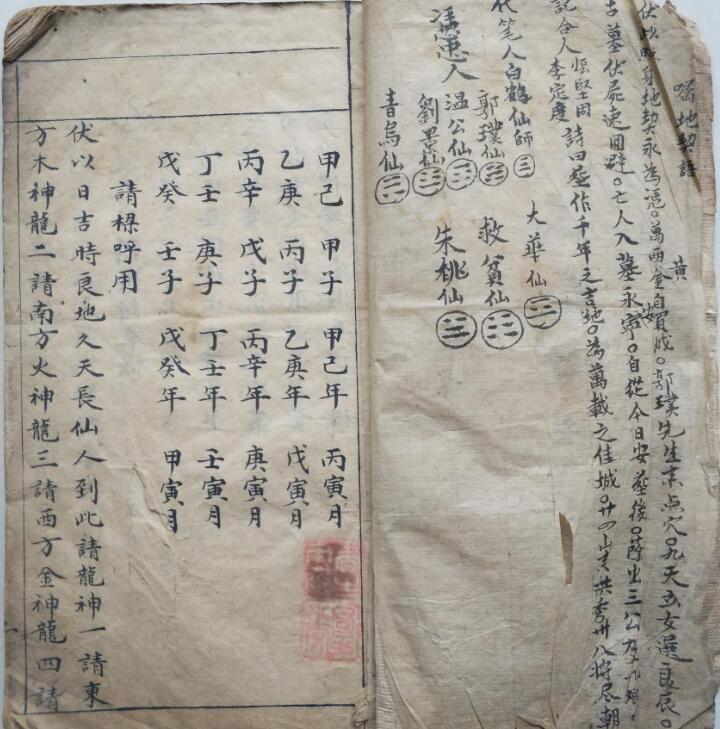 囑地契語
伏此照身地契永為憑。萬両黄金自買成。郭璞先生来点穴。九天玄女選良辰。
古墓伏屍速囬避。亡人入墓永寧。自從今日安葬後。蔭出三公
詩曰葬作千年之吉地。為萬載之佳城。廿四山来拱秀廿八將尽朝
記合人 張堅固
李定度
代笔人白鶴仙師
憑人
郭璞仙
温公仙
劉
青烏仙
大華仙
救貧仙
朱桃仙
甲己 甲子 甲己年 丙寅月
乙庚 丙子 乙庚年 戊寅月
丙辛 戊子 丙辛年 庚寅月
丁壬 庚子 丁壬年 壬寅月
戊癸 壬子 戊癸年 甲寅月
請樑呼用
伏以日吉時良地久天長仙人到此請龍神一請東
方木神龍二請南方火神龍三請西方金神龍四請